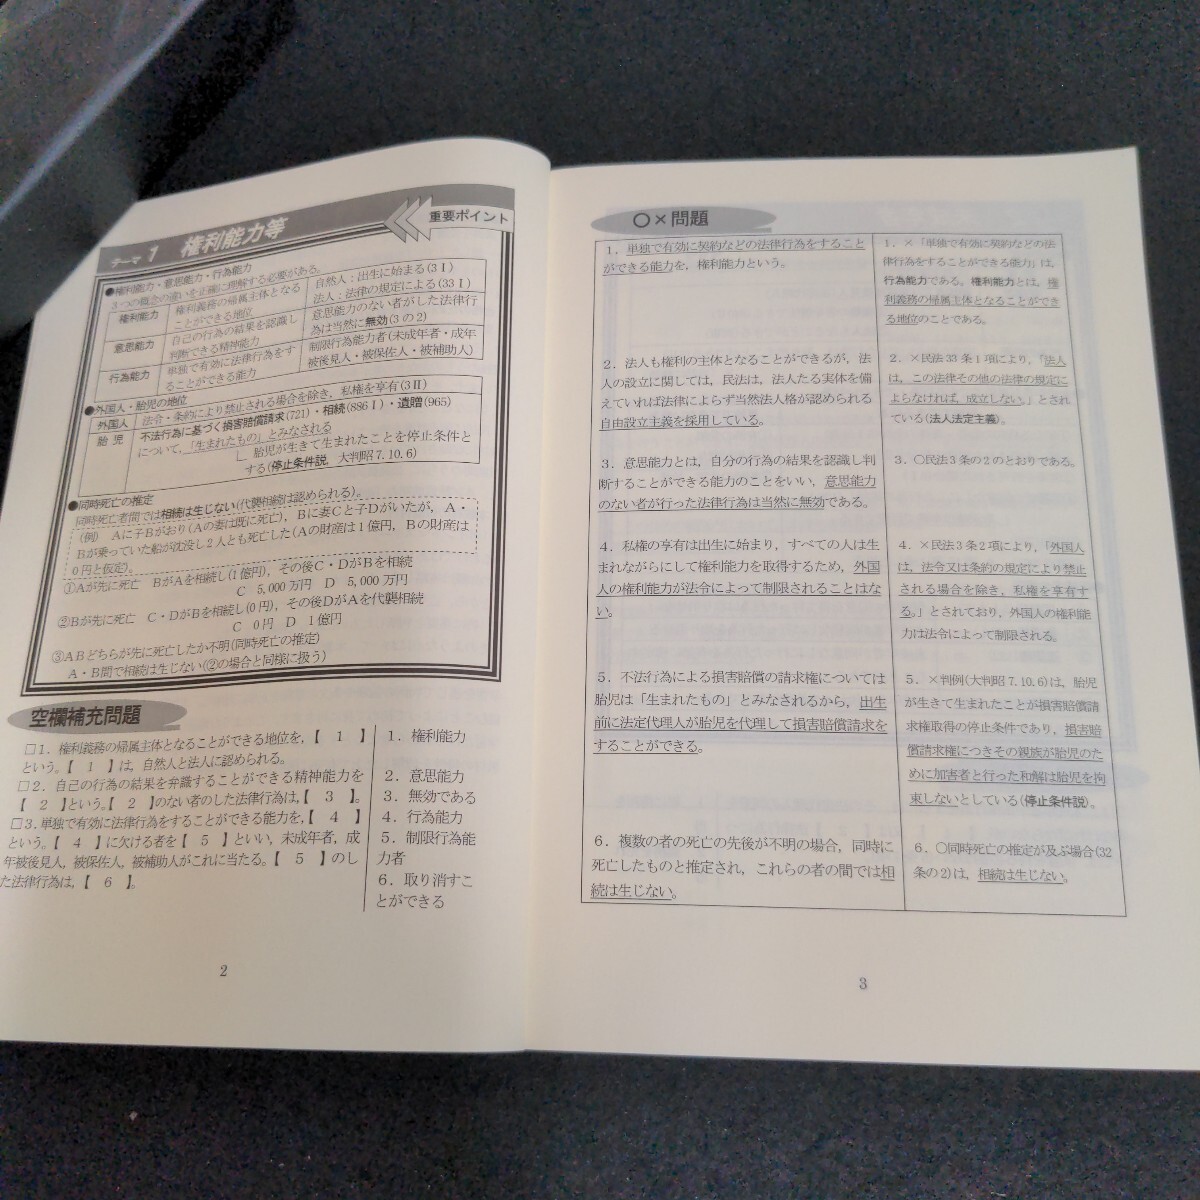 テーマ 1 権利能力等
重要ポイント
●権利能力・意思能力・行為能力
3つの概念の違いを正確に理解する必要がある。
権利能力
権利義務の帰属主体となる
ことができる地位
自然人：出生に始まる(3Ⅰ)
法人：法律の規定による(33Ⅰ)
意思能力
自己の行為の結果を認識し
判断できる精神能力
意思能力のない者がした法律行
為は当然に無効(3の2)
行為能力
単独で有効に法律行為をす
ることができる能力
制限行為能力者(未成年者・成年
被後見人・被保佐人・被補助人)
●外国人・胎児の地位
外国人
法令・条約により禁止される場合を除き，私権を享有(3Ⅱ)
胎児
不法行為に基づく損害賠償請求(721)・相続(886Ⅰ)・遺贈(965)
について，「生まれたもの」とみなされる
胎児が生きて生まれたことを停止条件と
する(停止条件説，大判昭7.10.6)
●同時死亡の推定
同時死亡者間では相続は生じない(代襲相続は認められる)。
(例) Aに子Bがおり(Aの妻は既に死亡)，Bに妻Cと子Dがいたが，A・
Bが乗っていた船が沈没し2人とも死亡した(Aの財産は1億円，Bの財産は
0円と仮定)。
①Aが先に死亡 BがAを相続し(1億円)，その後C・DがBを相続
C 5,000万円 D 5,000万円
②Bが先に死亡 C・DがBを相続し(0円)，その後DがAを代襲相続
C 0円 D 1億円
③ABどちらが先に死亡したか不明(同時死亡の推定)
A・B間で相続は生じない(②の場合と同様に扱う)
空欄補充問題
□1．権利義務の帰属主体となることができる地位を，【 1 】
という。【 1 】は，自然人と法人に認められる。
□2．自己の行為の結果を弁識することができる精神能力を
【 2 】という。【 2 】のない者のした法律行為は，【 3 】。
□3．単独で有効に法律行為をすることができる能力を，【 4 】
という。【 4 】に欠ける者を【 5 】といい，未成年者，成
年被後見人，被保佐人，被補助人がこれに当たる。【 5 】のし
た法律行為は，【 6 】。
1．権利能力
2．意思能力
3．無効である
4．行為能力
5．制限行為能
力者
6．取り消すこ
とができる
2
○×問題
1．単独で有効に契約などの法律行為をすること
ができる能力を，権利能力という。
1．×「単独で有効に契約などの法
律行為をすることができる能力」は，
行為能力である。権利能力とは，権
利義務の帰属主体となることができ
る地位のことである。
2．法人も権利の主体となることができるが，法
人の設立に関しては，民法は，法人たる実体を備
えていれば法律によらず当然法人格が認められる
自由設立主義を採用している。
2．×民法33条1項により，「法人
は，この法律その他の法律の規定に
よらなければ，成立しない。」とされ
ている(法人法定主義)。
3．意思能力とは，自分の行為の結果を認識し判
断することができる能力のことをいい，意思能力
のない者が行った法律行為は当然に無効である。
3．○民法3条の2のとおりである。
4．私権の享有は出生に始まり，すべての人は生
まれながらにして権利能力を取得するため，外国
人の権利能力が法令によって制限されることはな
い。
4．×民法3条2項により，「外国人
は，法令又は条約の規定により禁止
される場合を除き，私権を享有す
る。」とされており，外国人の権利能
力は法令によって制限される。
5．不法行為による損害賠償の請求権については
胎児は「生まれたもの」とみなされるから，出生
前に法定代理人が胎児を代理して損害賠償請求を
することができる。
5．×判例(大判昭7.10.6)は，胎児
が生きて生まれたことが損害賠償請
求権取得の停止条件であり，損害賠
償請求権につきその親族が胎児のた
めに加害者と行った和解は胎児を拘
束しないとしている(停止条件説)。
6．複数の者の死亡の先後が不明の場合，同時に
死亡したものと推定され，これらの者の間では相
続は生じない。
6．○同時死亡の推定が及ぶ場合(32
条の2)は，相続は生じない。
3